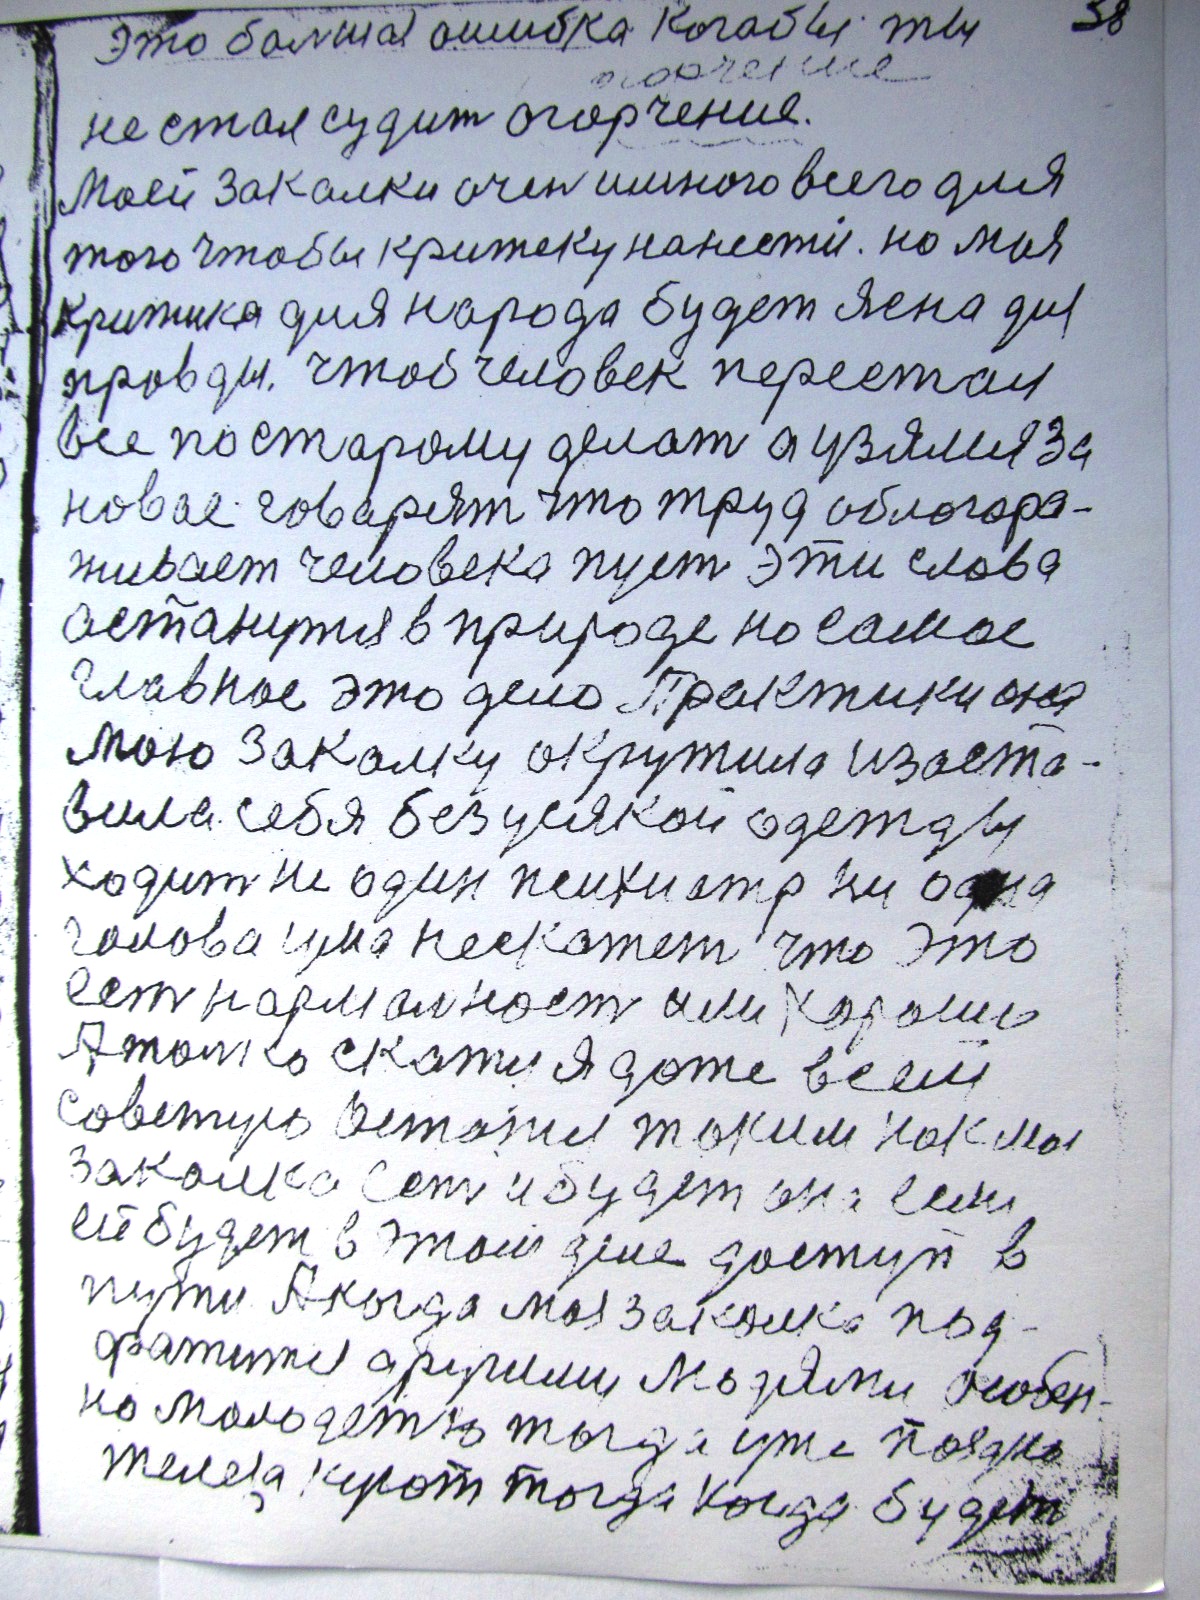 38
Это балшая ошибка Когабы ты
огорчение
не стал судит огорчение.
Моей Закалки очен имного всего для
того чтобы критеку нанести. но моя
критика для народа будет ясна для
провды. чтоб человек перестал
все по старому делат а узялся За
новае. говарят что труд облогора-
живает человека пуст эти слова
астанутся в природе но самае
главное это дело Практики она
мою Закалку окружила изаста-
вила себя без усякой одежды
ходит не один психиатр ни одна
голова ума нескажет что это
ест нармалност или Харошо
Атолко скажу Я даже всем
советую астатся таким как моя
закалка ест и будет она если
ей будет в этом деле доступ в
пути А когда моя закалка под-
фатится другими Людями особен-
но молодежю тогда уже
тогда когда будет